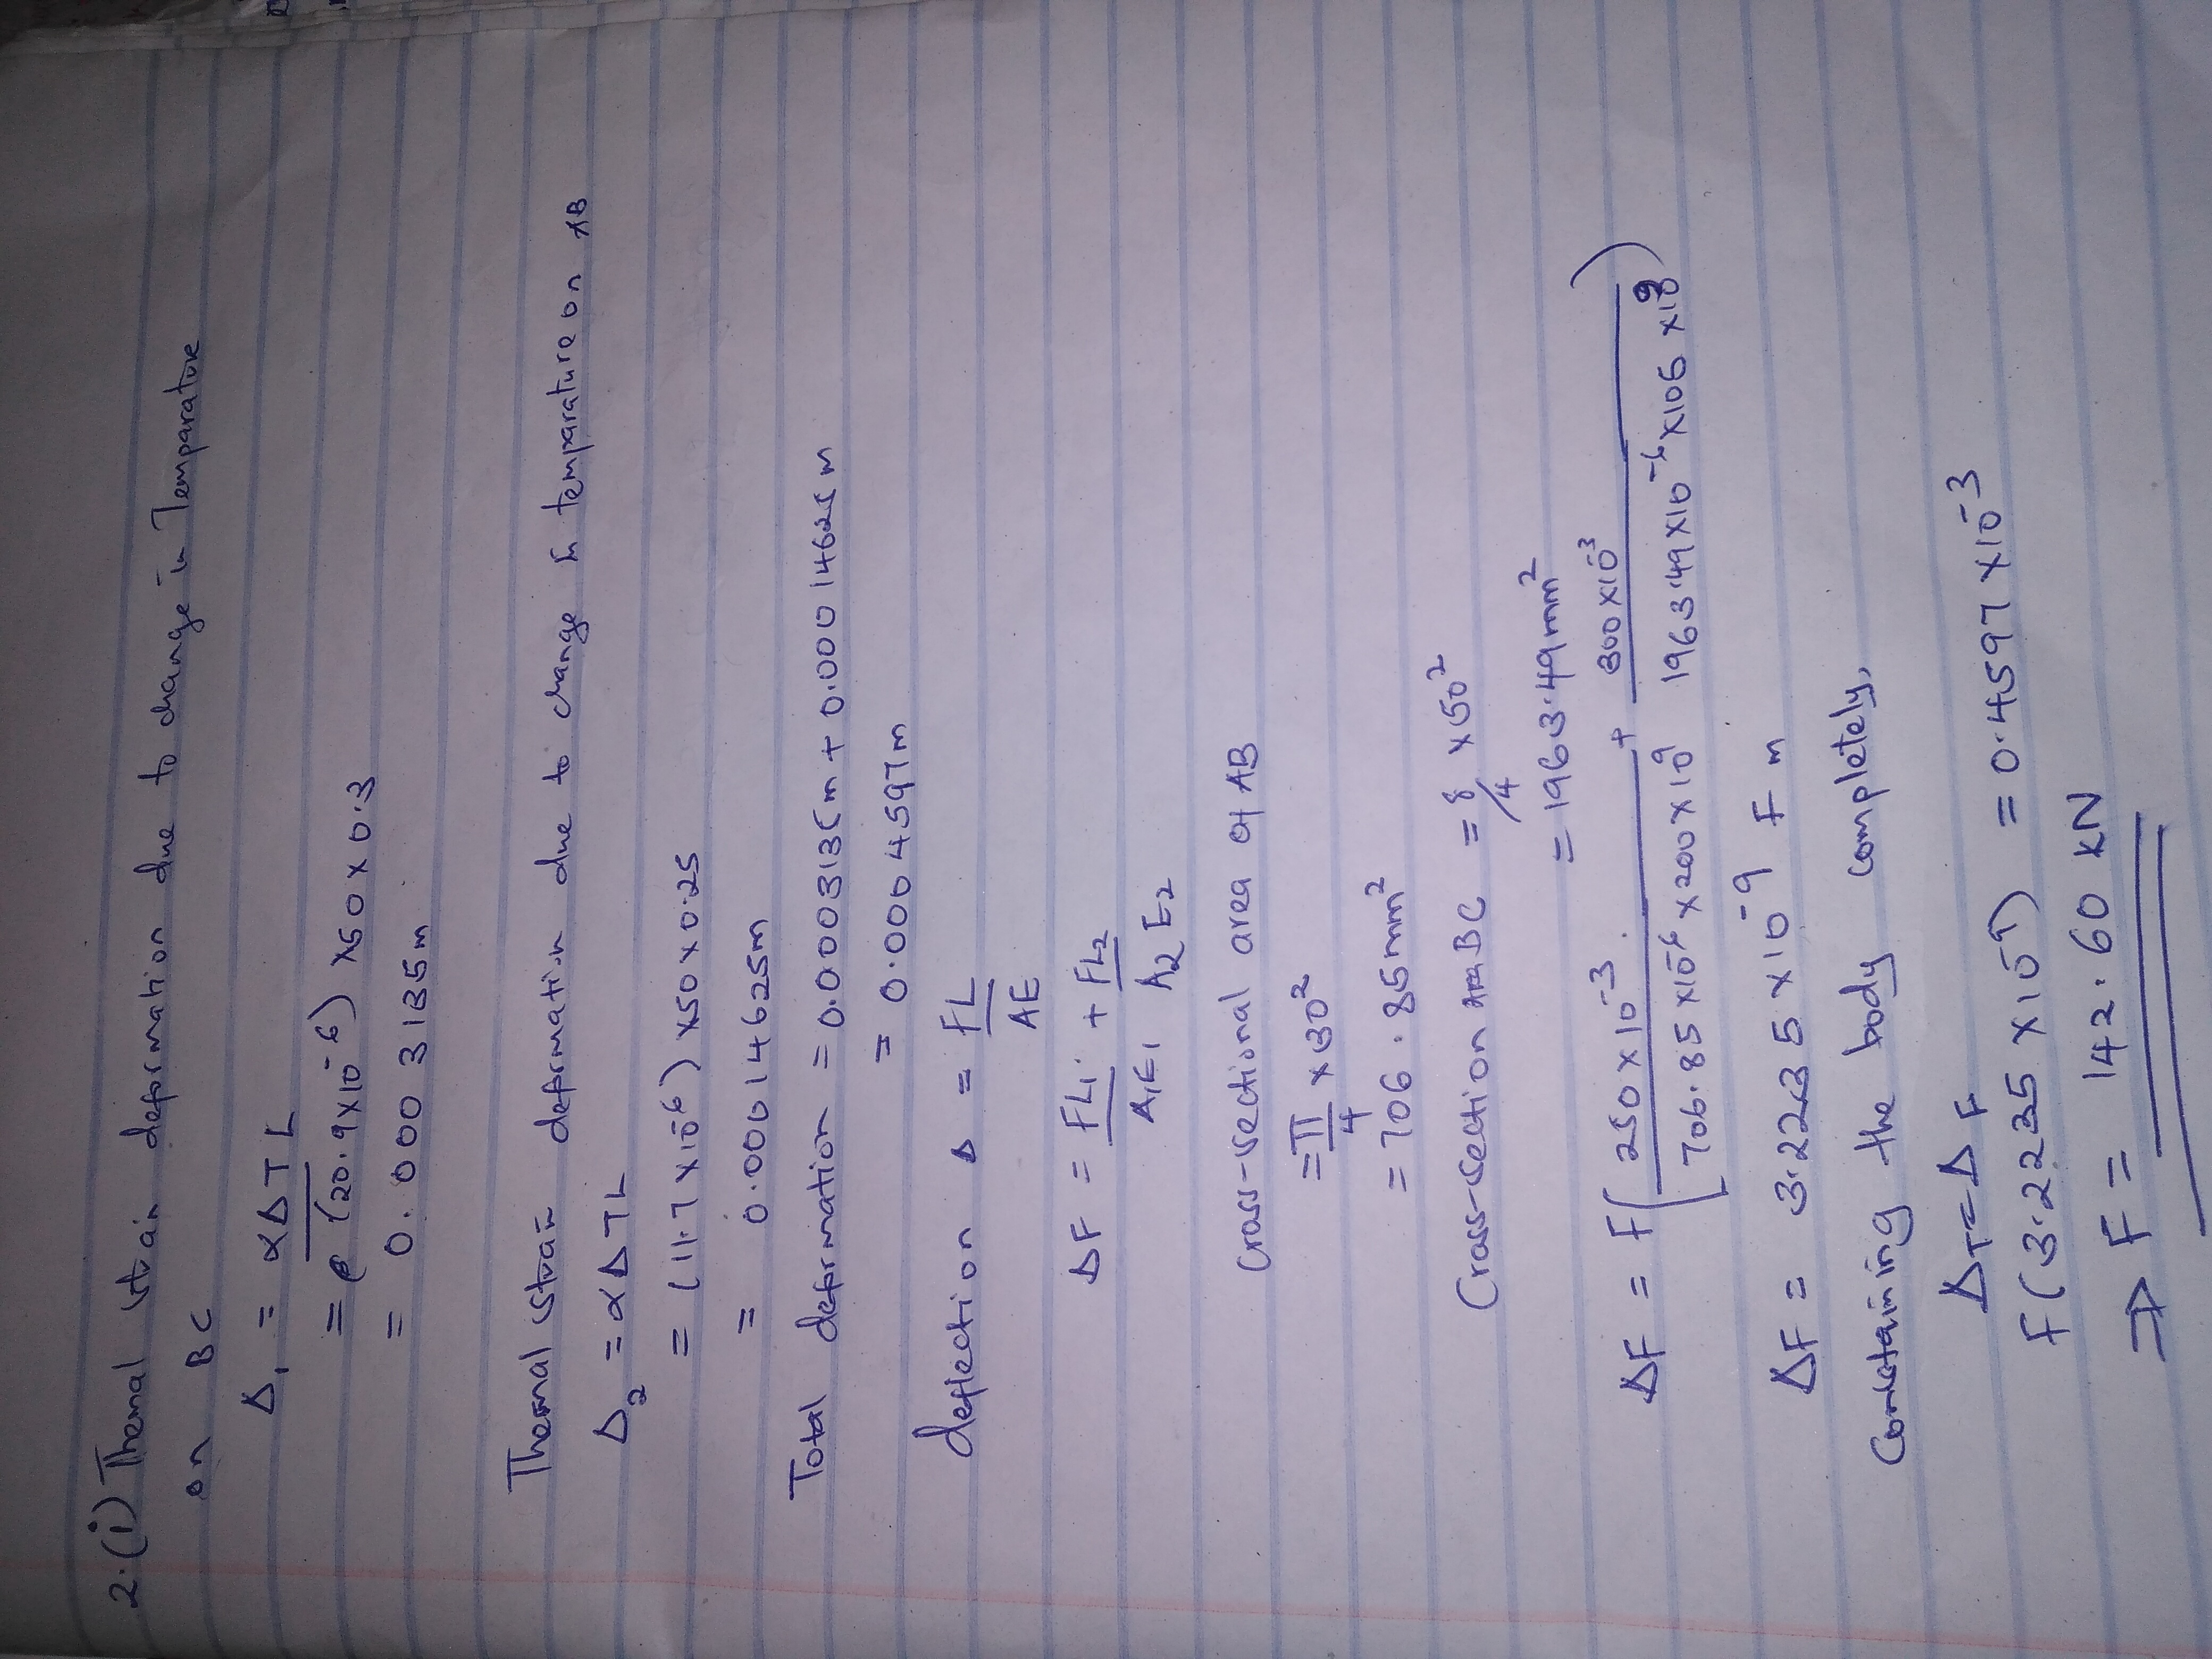 2.(i) Thermal strain deformation due to change in Temparature
on BC
Δ₁ = αΔTL
= (20.9×10⁻⁶) ×50 × 0.3
= 0.0003135m
Thermal strain deformation due to change in temparature on AB
Δ₂ = αΔTL
= (11.7×10⁻⁶) ×50×0.25
= 0.00014625m
Total deformation = 0.0003135m + 0.00014625m
= 0.0004597m
deflection Δ = FL/AE
ΔF = FL₁/A₁E₁ + FL₂/A₂E₂
Cross-sectional area of AB
= π/4 × 30²
= 706.85mm²
Cross-section area BC = π/4 × 50²
= 1963.49mm²
ΔF = F[250×10⁻³/706.85×10⁻⁶×200×10⁹ + 300×10⁻³/1963.49×10⁻⁶×105×10⁹)
ΔF = 3.2235×10⁻⁹ F m
Constraining the body completely,
ΔT = ΔF
F(3.2235×10⁻⁹) = 0.4597×10⁻³
⇒ F = 142.60 kN